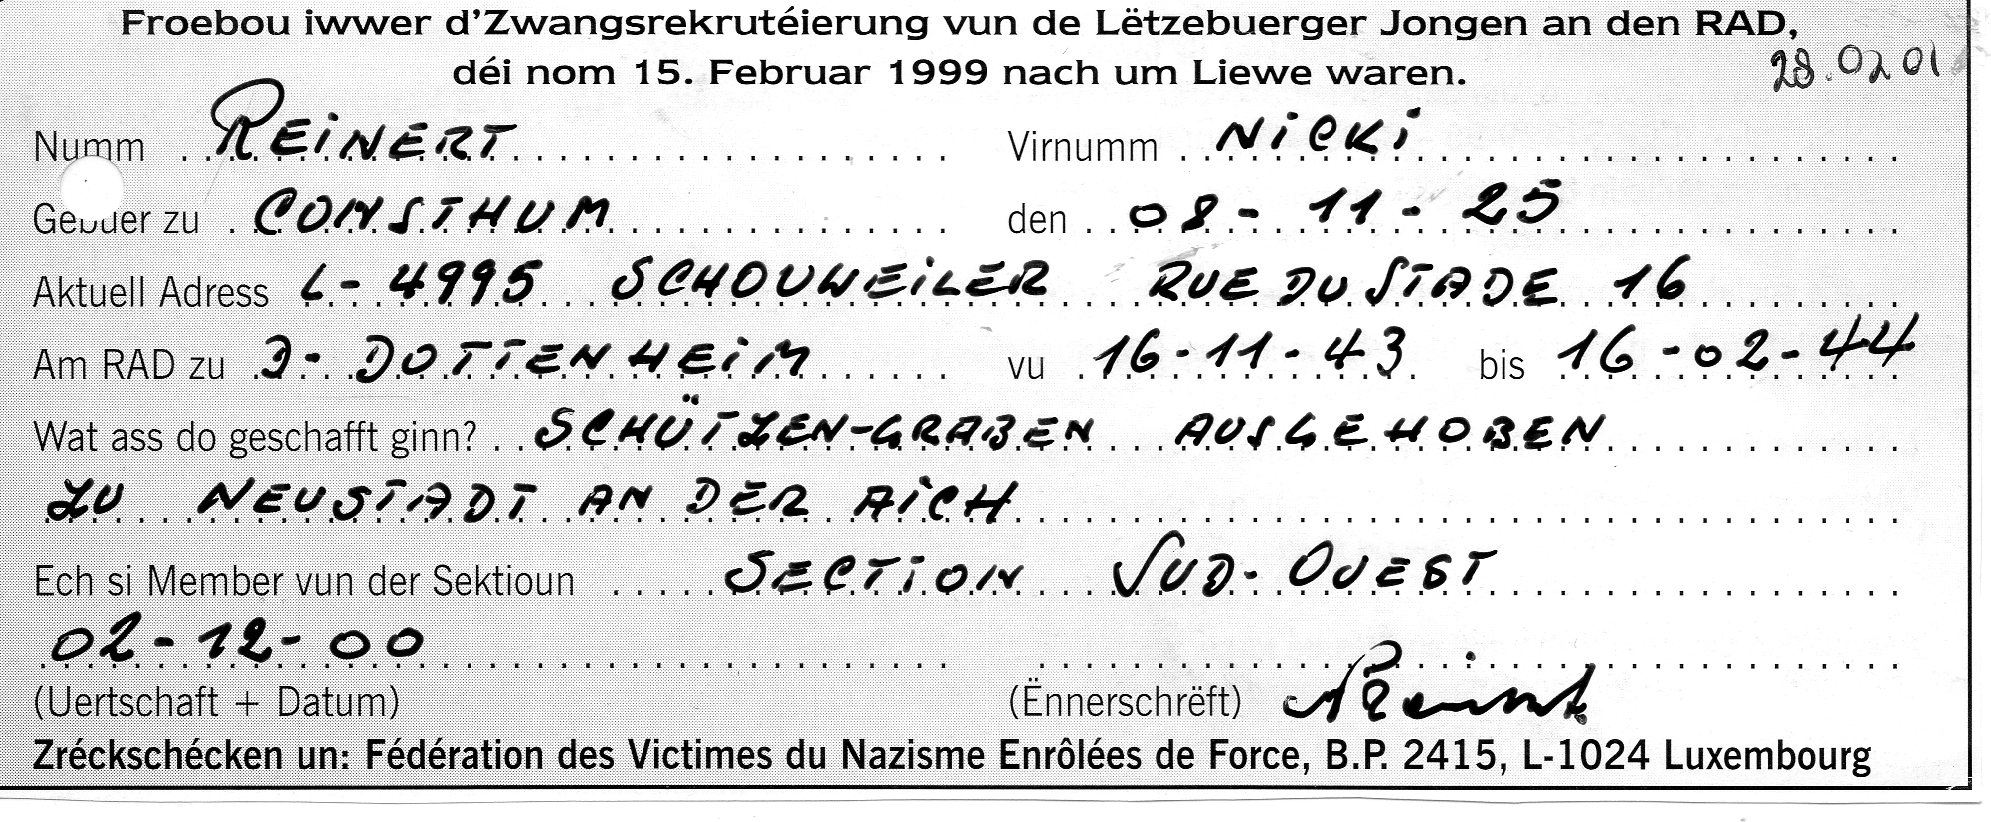 Froebou iwwer d'Zwangsrekrutéierung vun de Lëtzebuerger Jongen an den RAD,
déi nom 15. Februar 1999 nach um Liewe waren.
28.02 01
Numm REINERT Virnumm NICKI
Gebuer zu CONSTHUM den 08-11-25
Aktuell Adress L-4995 SCHOUWEILER RUE DU STADE 16
Am RAD zu D-DOTTENHEIM vu 16-11-43 bis 16-02-44
Wat ass do geschafft ginn? SCHÜTZEN-GRABEN AUSGEHOBEN
ZU NEUSTADT AN DER AICH
Ech si Member vun der Sektioun SECTION SUD-OUEST
02-12-00
(Uertschaft + Datum) (Ënnerschrëft) NReinert
Zréckschécken un: Fédération des Victimes du Nazisme Enrôlées de Force, B.P. 2415, L-1024 Luxembourg